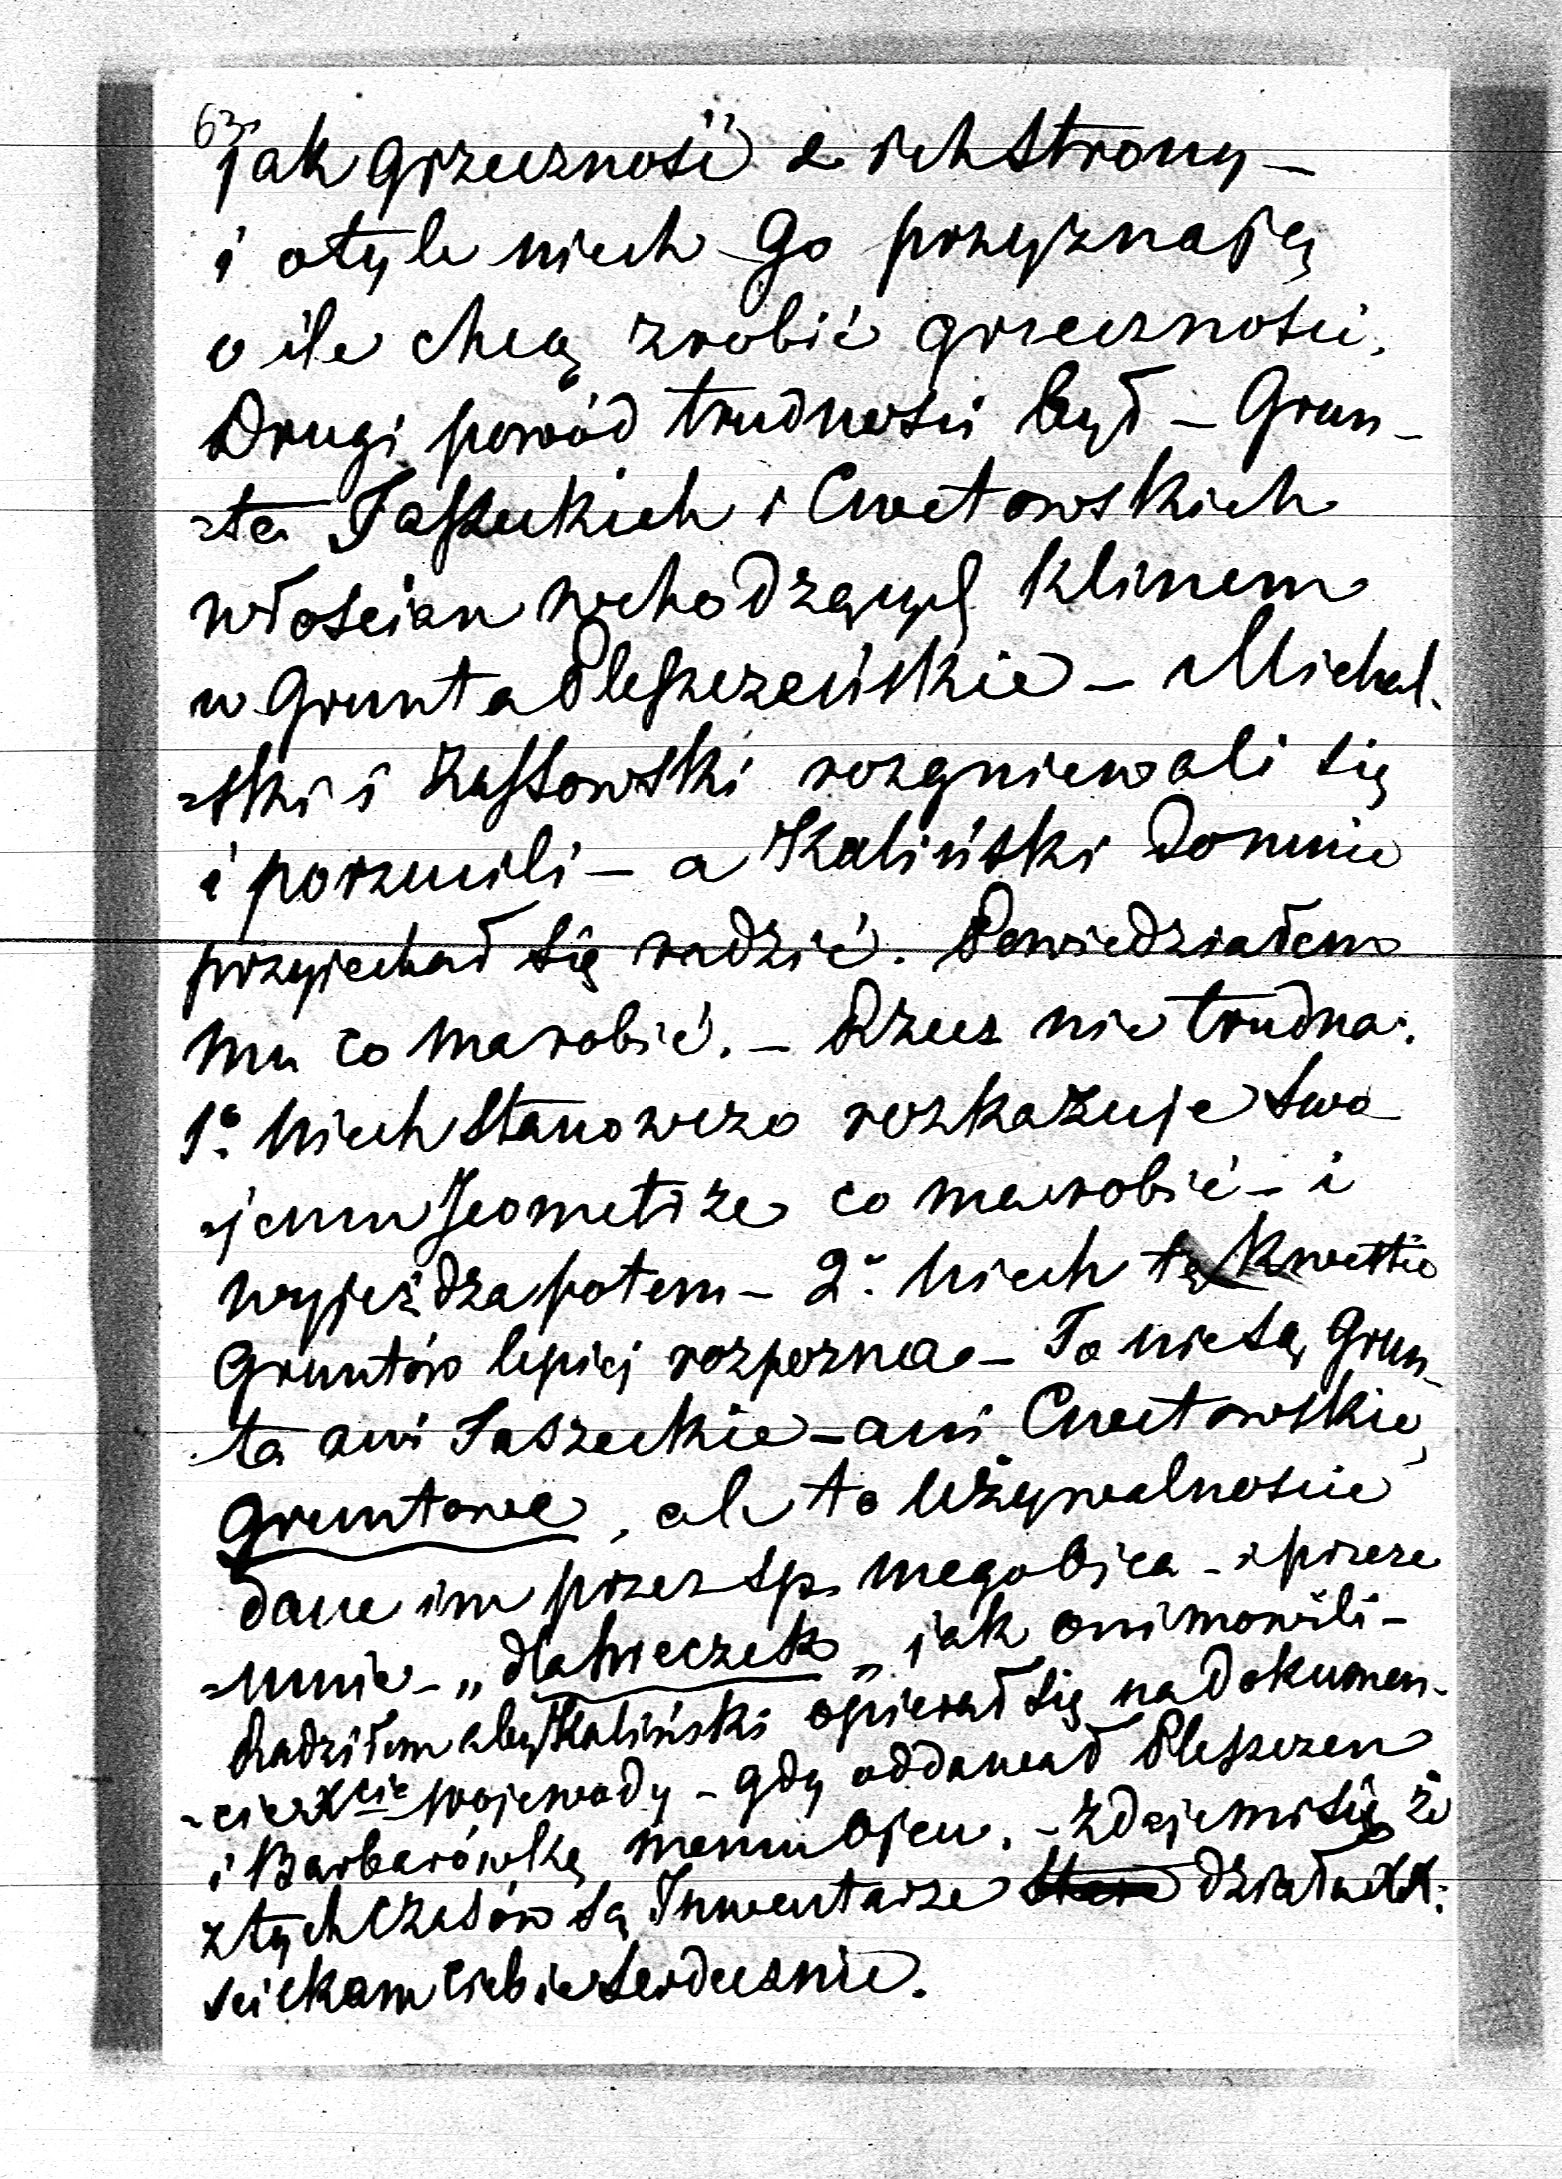 63.
jak grzeczność z ich strony –
i o tyle niech Go przyznają
o ile chcą zrobić grzeczności.
Drugi powód trudności był – Grun–
=ta Jaszeckich i Cwetowskich
włościan wchodzących klinem
w Grunta Pleszczeńskie – Michal.
=ski i Zassowski rozgniewali się
i porzucili – a Kaliński Do mnie
przyjechał się radzić. Powiedziałem
mu co ma robić. – Rzecz nie trudna.
1° Niech stanowczo rozkazuje swo–
=jemu Jeometrze co ma robić – i
wyjeżdza potem – 2° Niech tę kwestie
Gruntów lepiej rozpozna – To nie są Grun–
ta ani Jaszeckie – ani Cwetowskie
gruntowe, ale to Używalnoście
dane im przez śp. mego Ojca – i przeze
=mnie – „dla Owieczek„ jak oni mówili –
Radziłem aby Kaliński opierał się na Dokumen–
=cie Xcia Wojewody – gdy oddawał Pleszczen
i Barbarówkę memu Ojcu. – Zdaje mi się że
z tych czasów są Inwentarze działu XX.
sciskam ciebie serdecznie.